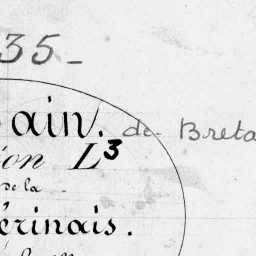 35-
ain. de Breta
ion L³
de la
érinais.